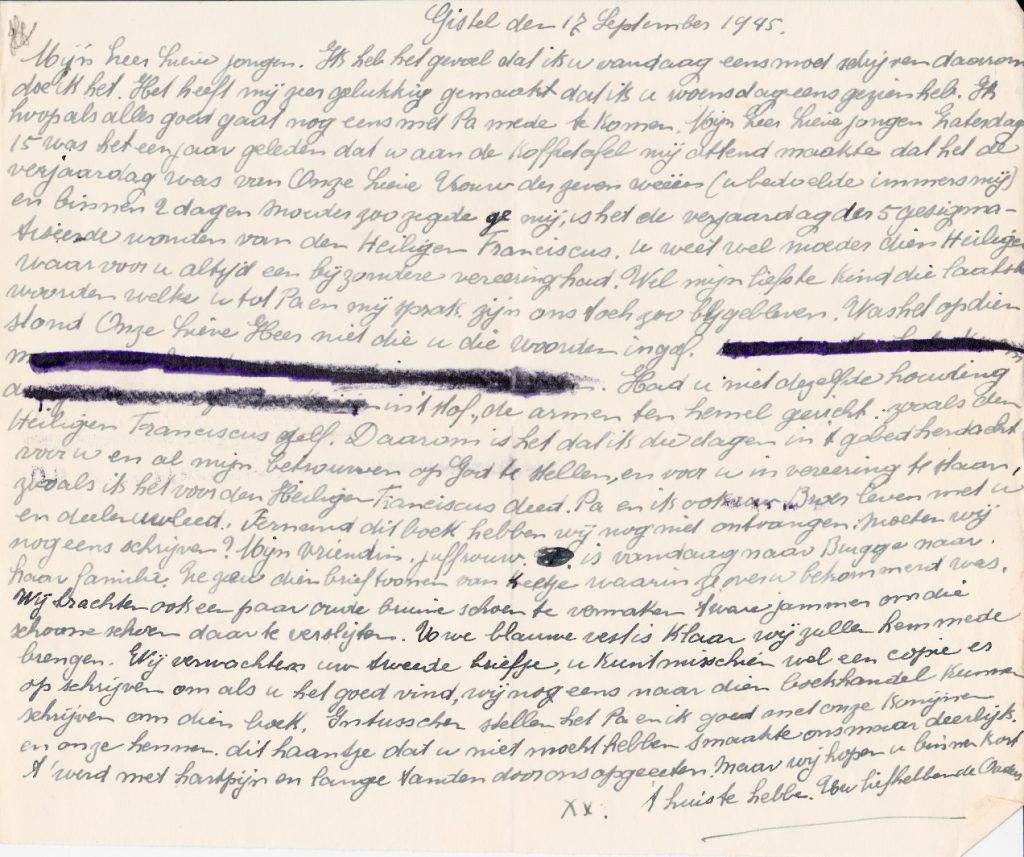 Gistel den 17 September 1945.
Mijn heer Lieve jongen. Ik heb het gevoel dat ik u vandaag eens moet schrijven daarom
doe ik het. Het heeft mij zeer gelukkig gemaakt dat ik u woensdag eens gezien heb. Ik
hoop als alles goed gaat nog eens met Pa mede te komen. Mijn Lieve jongen Zaterdag
15 was het een jaar geleden dat u aan de Koffietafel mij attend maakte dat het de
verjaardag was van Onze Lieve Vrouw der zeven weeën (u bedoelde immers mij)
en binnen 2 dagen Moeder zoo zegde ge mij, is het de verjaardag der 5 gesigma-
tiseerde wonden van den Heiligen Franciscus. u weet wel moeder dien Heiligen
waar voor u altijd een bijzondere vereering had. Wel mijn liefste Kind die laatste
woorden welke u tot Pa en mij sprak zijn ons toch zoo bijgebleven. Was het op dien
stond Onze Lieve Heer niet die u die woorden ingaf.
Had u niet dezelfde houding
in 't Hof, de armen ten hemel gericht. zooals den
Heiligen Franciscus zelf. Daarom is het dat ik die dagen in 't gebed herdacht
voor u en al mijn betrouwen op God te stellen, en voor u in vereering te staan,
zooals ik het voor den Heiligen Franciscus deed. Pa en ik ook Broer leven met u
en deelen uw leed. Fernand dit boek hebben wij nog niet ontvangen. Moeten wij
nog eens schrijven? Mijn Vriendin, juffrouw is vandaag naar Brugge naar
haar familie. Ze zou dien brief toonen van waarin ze over u bekommerd was.
Wij brachten ook een paar oude bruine schoen te vermaken t ware jammer om die
schoone schoen daar te verslijten. Uwe blauwe vest is Klaar wij zullen hem mede
brengen. Wij verwachten uw tweede briefje, u kunt misschien wel een copie er
op schrijven om als u het goed vind, wij nog eens naar dien boekhandel kunnen
schrijven om dien boek. Intusschen stellen het Pa en ik goed met onze Konijnen
en onze hennen. dit haantje dat u niet mocht hebben smaakte ons maar deerlijk.
't werd met hartpijn en lange tanden door ons opgeeten. Maar wij hopen u binnen Kort
xx. t huis te hebbe. Uw liefhebbende Ouders